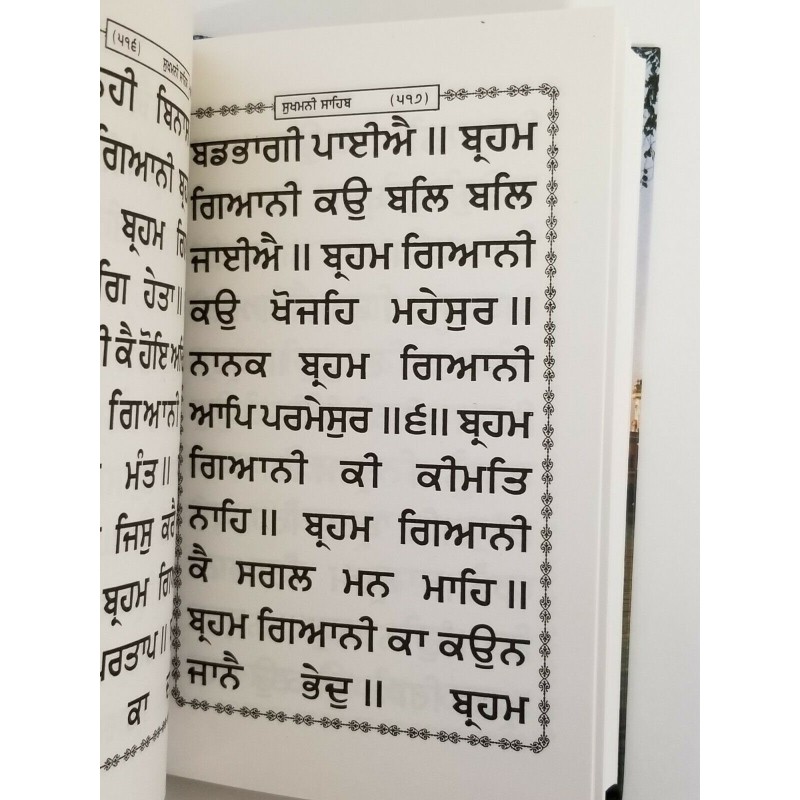 (੫੧੬)
ਬਿਨਾਸ
ਗਿਆਨੀ
ਬ੍ਰਹਮ
ਹੇਤਾ॥
ਕੈ ਹੋਇ
ਗਿਆਨੀ
ਮੰਤ॥
ਜਿਸੁ ਕਰੈ
ਬ੍ਰਹਮ
ਪਰਤਾਪ॥
ਕਾ
ਸੁਖਮਨੀ ਸਾਹਿਬ (੫੧੭)
ਬਡਭਾਗੀ ਪਾਈਐ ॥ ਬ੍ਰਹਮ
ਗਿਆਨੀ ਕਉ ਬਲਿ ਬਲਿ
ਜਾਈਐ ॥ ਬ੍ਰਹਮ ਗਿਆਨੀ
ਕਉ ਖੋਜਹਿ ਮਹੇਸੁਰ ॥
ਨਾਨਕ ਬ੍ਰਹਮ ਗਿਆਨੀ
ਆਪਿ ਪਰਮੇਸੁਰ ॥੬॥ ਬ੍ਰਹਮ
ਗਿਆਨੀ ਕੀ ਕੀਮਤਿ
ਨਾਹਿ ॥ ਬ੍ਰਹਮ ਗਿਆਨੀ
ਕੈ ਸਗਲ ਮਨ ਮਾਹਿ ॥
ਬ੍ਰਹਮ ਗਿਆਨੀ ਕਾ ਕਉਨ
ਜਾਨੈ ਭੇਦੁ ॥ ਬ੍ਰਹਮ